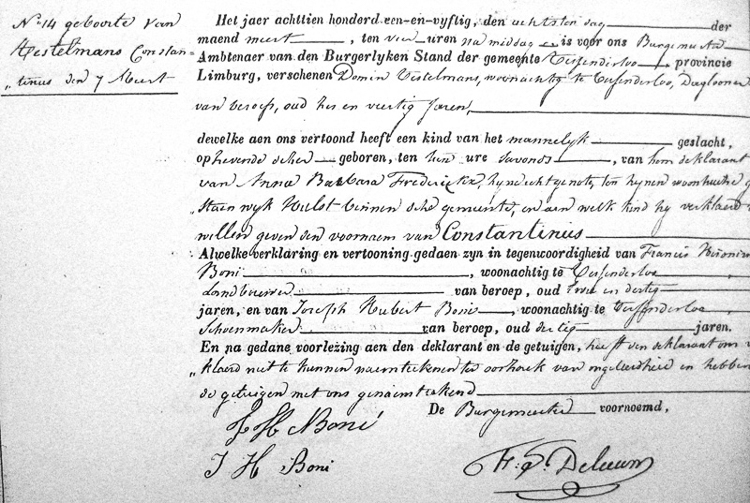 No 14 geboorte van
Hestelmans Constan-
„tinus den 7 Meert
Het jaer achttien honderd een-en-vyftig, den achtsten dag der
maend meert, ten vier uren na middag is voor ons Burgemeester
Ambtenaer van den Burgerlyken Stand der gemeente Tessenderloo provincie
Limburg, verschenen Domin Hestelmans, woonachtig te Tessenderloo, Daglooner
van beroep, oud zes en veertig Jaren,
dewelke aen ons vertoond heeft een kind van het mannelyk geslacht,
op geboren, ten tien ure savonds, van hem deklarant
van Anna Barbara Frederickx, zyne echtgenote, ten zynen woonhuize
Staen wyk Hulst binnen deze gemeente, en aen welk kind hy verklaerd
willen geven den voornaem van Constantinus
Alwelke verklaring en vertooning gedaen zyn in tegenwoordigheid van Francis
Boni, woonachtig te Tessenderloo
Landbouwer van beroep, oud twee en dertig
jaren, en van Joseph Hubert Boni, woonachtig te Tessenderloo,
Schoenmaker van beroep, oud dertig jaren.
En na gedane voorlezing aen den deklarant en de getuigen, heeft den deklarant
„klaerd niet te kunnen naemteekenen ter oorzaek van ongeleerdheid en hebben
de getuigen met ons genaemteekend
De Burgemeester voornoemd,
F H Boni
J H Boni
Deleeuw